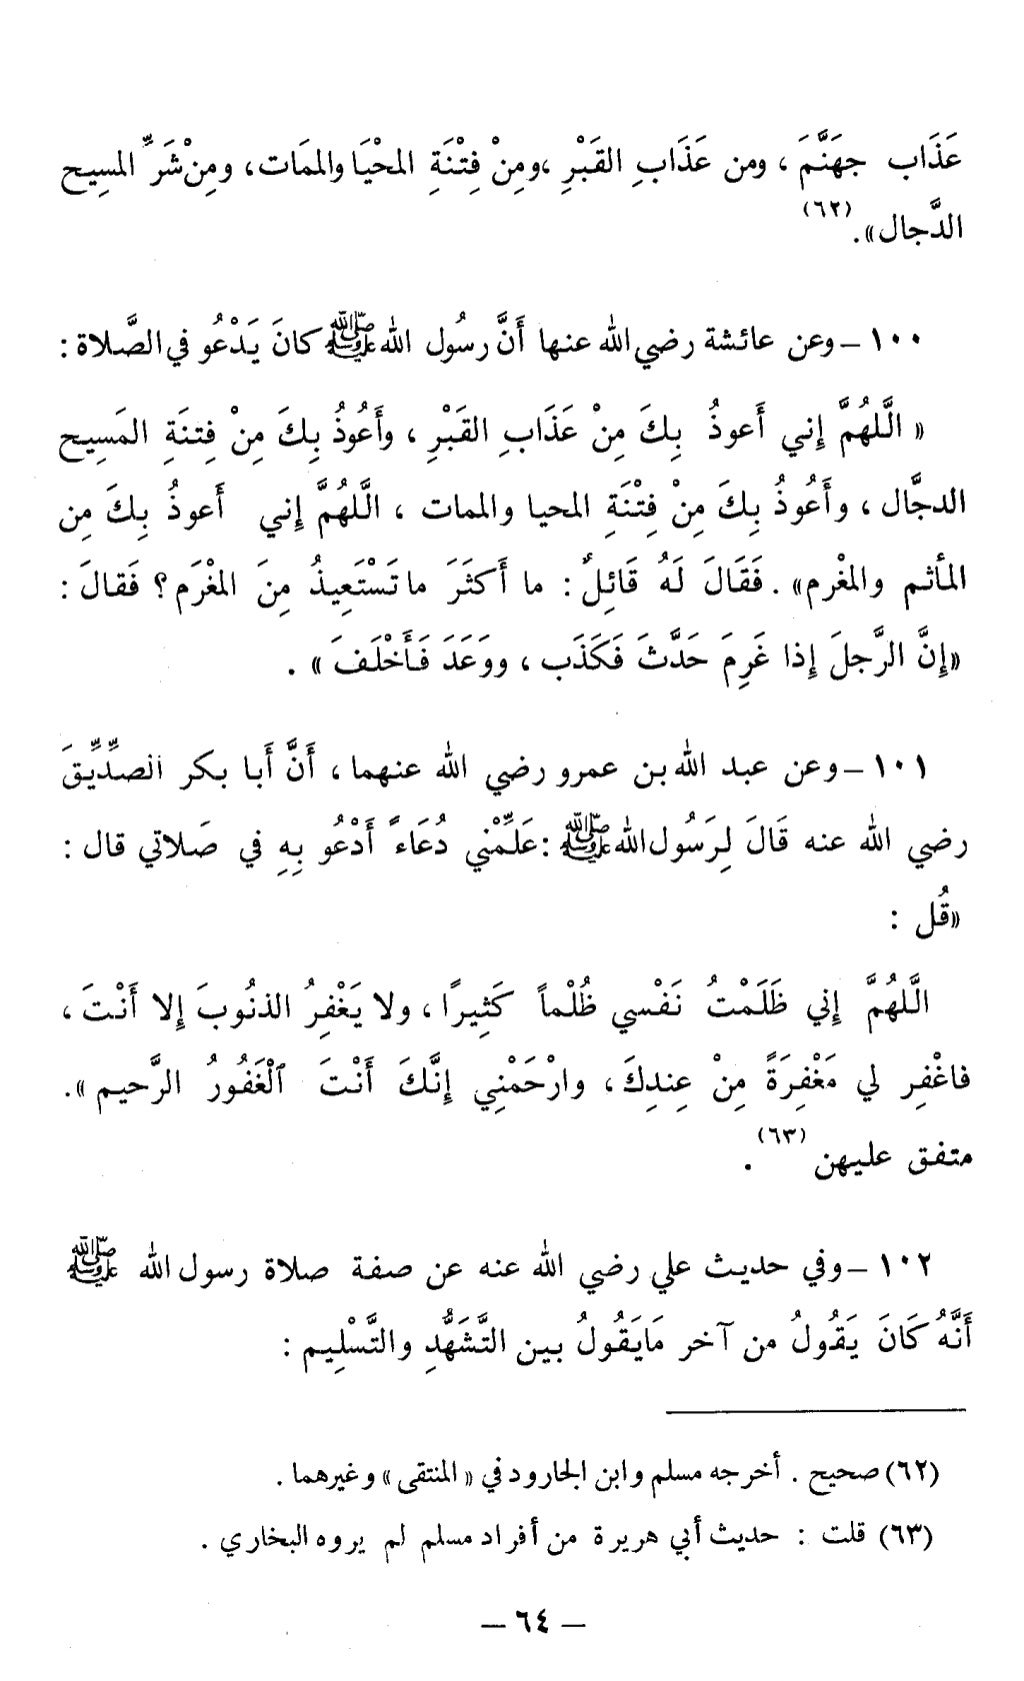 عَذَاب جهَنَّمَ ، ومن عَذَابِ القَبْرِ ،ومِنْ فِتْنَةِ المحْيَا والممَات، ومِنْ شَرِّ المسِيح
الدَّجال».(٦٢)
١٠٠ ـ وعن عائشة رضي الله عنها أَنَّ رسُول الله ﷺ كانَ يَدْعُو في الصَّلاة :
« الَّلهُمَّ إِني أَعوذُ بِكَ مِنْ عَذَابِ القَبْرِ ، وأَعُوذُ بِكَ مِنْ فِتنَةِ المَسِيح
الدجَّال ، وأَعُوذُ بِكَ مِنْ فِتْنَةِ المحيا والممات ، الَّلهُمَّ إِني أَعوذُ بِكَ مِن
المأثم والمغْرم» . فَقَالَ لَهُ قَائِلٌ : ما أَكثَرَ ماتَسْتَعِيذُ مِنَ المغْرَم ؟ فَقالَ :
«إِنَّ الرَّجلَ إِذا غَرِمَ حَدَّثَ فَكَذَب ، ووَعَدَ فَأَخْلَفَ » .
١٠١ ـ وعن عبد الله بن عمرو رضي الله عنهما ، أَنَّ أَبا بكر الصِّدِّيقَ
رضي الله عنه قَالَ لِرَسُول الله ﷺ :عَلِّمْني دُعَاءً أَدْعُو بِهِ في صَلاتي قال :
«قُل :
الَّلهُمَّ إِني ظَلَمْتُ نَفْسي ظُلْماً كَثِيرًا ، ولا يَغْفِرُ الذنُوبَ إِلا أَنْتَ ،
فاغْفِر لي مَغْفِرَةً مِنْ عِندِكَ ، وارْحَمْنِي إِنَّكَ أَنْتَ ٱلْغَفُورُ الرَّحيم ».
متفق عليهن (٦٣).
١٠٢ ـ وفي حديث علي رضي الله عنه عن صفة صلاة رسول الله ﷺ
أَنَّهُ كَانَ يَقُولُ من آخر مَايَقُولُ بين التَّشَهُّدِ والتَّسْلِيم :
(٦٢) صحيح . أخرجه مسلم وابن الجارود في « المنتقى » وغيرهما .
(٦٣) قلت : حديث أبي هريرة من أفراد مسلم لم يروه البخاري .
— ٦٤ —